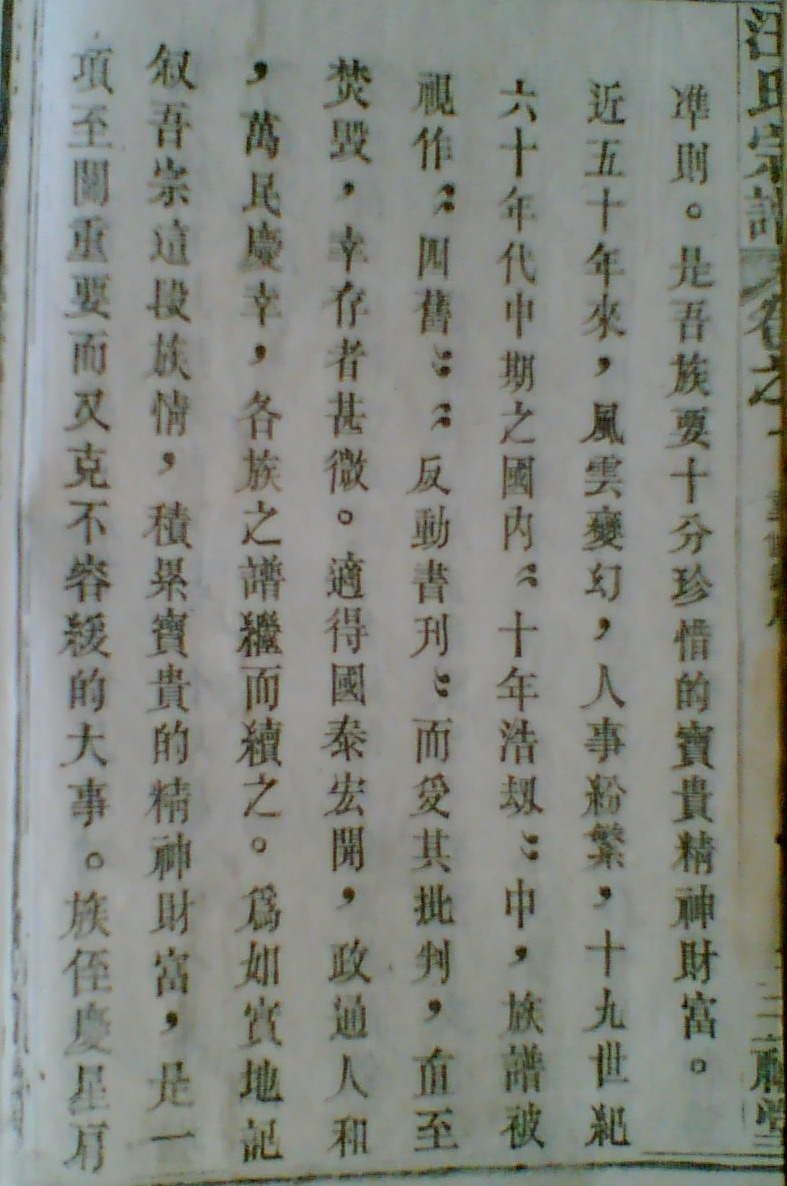 汪氏宗譜
卷之
準則。是吾族要十分珍惜的寶貴精神財富。
近五十年來，風雲變幻，人事紛繁，十九世紀
六十年代中期之國内“十年浩劫”中，族譜被
視作“四舊”“反動書刊”而受其批判，直至
焚毀，幸存者甚微。適得國泰宏開，政通人和
，萬民慶幸，各族之譜繼而續之。爲如實地記
叙吾宗這段族情，積累寶貴的精神財富，是一
項至關重要而又克不容緩的大事。族侄慶星肩